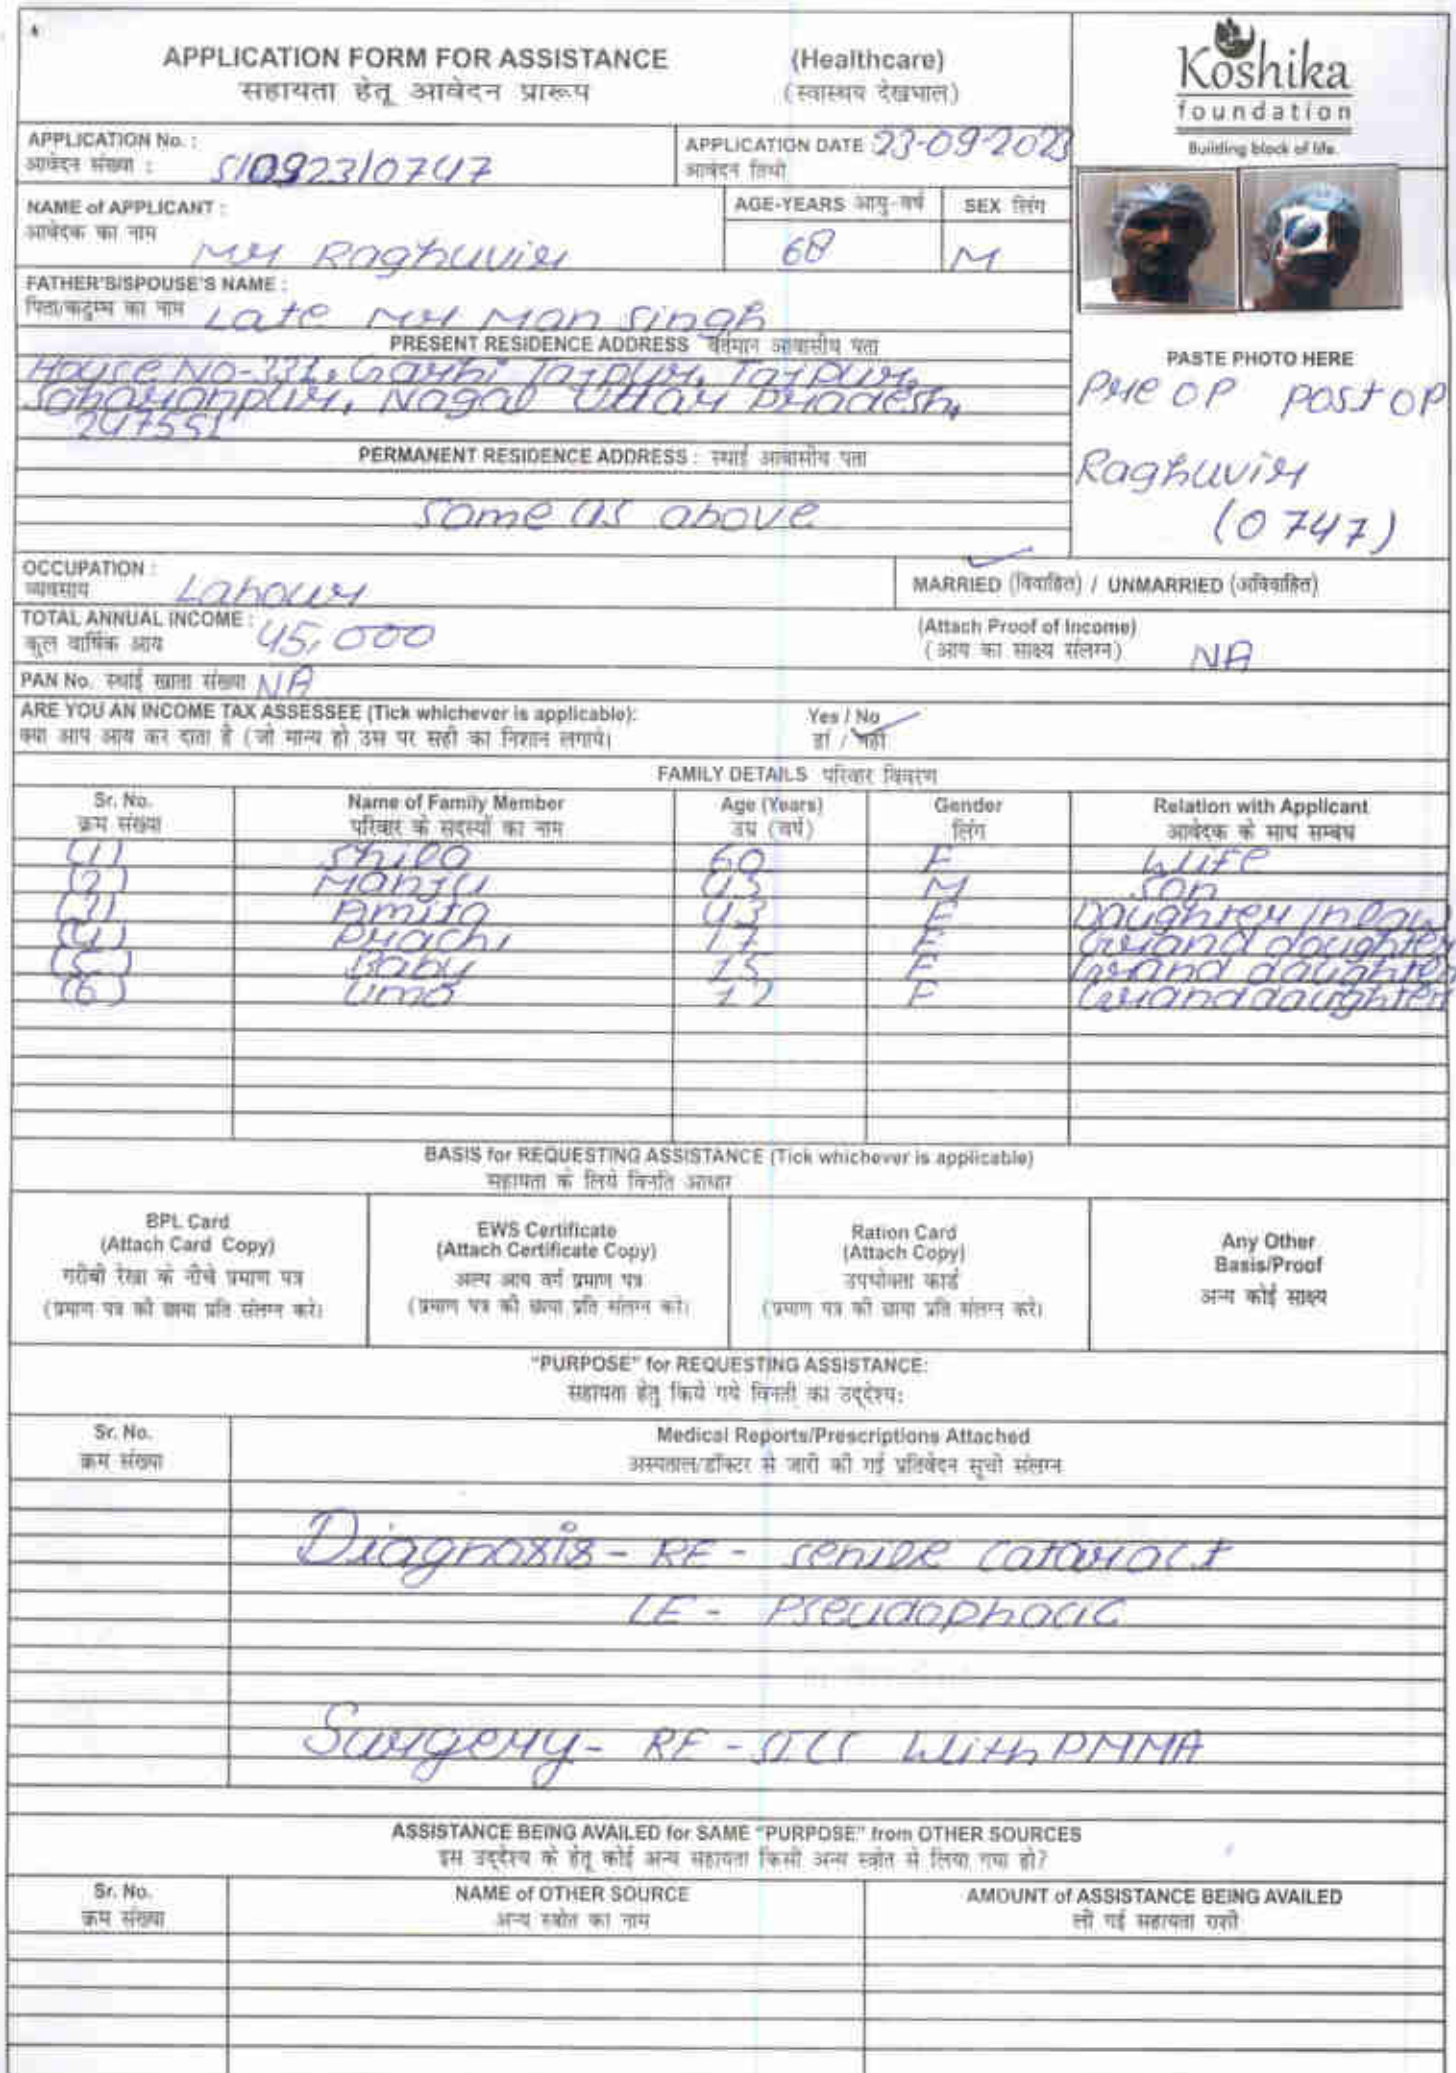 APPLICATION FORM FOR ASSISTANCE (Healthcare)
सहायता हेतू आवेदन प्रारूप (स्वास्थय देखभाल)
Koshika
foundation
Building block of life.
APPLICATION No. :
आवेदन संख्या : S/0923/0747
APPLICATION DATE 23-09-2023
आवेदन तिथी
NAME of APPLICANT :
आवेदक का नाम Mr Raghuvir
AGE-YEARS आयु-वर्ष 68
SEX लिंग M
FATHER'S/SPOUSE'S NAME :
पिता/कटुम्ब का नाम Late Mr Man Singh
PRESENT RESIDENCE ADDRESS वर्तमान आवासीय पता
House No-331, Garhi Tajpur, Tajpur,
Saharanpur, Nagal Uttar Pradesh,
247551
PERMANENT RESIDENCE ADDRESS : स्थाई आवासीय पता
Same as above
PASTE PHOTO HERE
Pre OP Post OP
Raghuvir
(0747)
OCCUPATION :
व्यवसाय Labour
MARRIED (विवाहित) / UNMARRIED (अविवाहित)
TOTAL ANNUAL INCOME :
कुल वार्षिक आय 45,000
(Attach Proof of Income)
(आय का साक्ष्य संलग्न) NA
PAN No. स्थाई खाता संख्या NA
ARE YOU AN INCOME TAX ASSESSEE (Tick whichever is applicable): Yes / No
क्या आप आय कर दाता है (जो मान्य हो उस पर सही का निशान लगाये। हां / नहीं
FAMILY DETAILS परिवार विवरण
Sr. No. Name of Family Member Age (Years) Gender Relation with Applicant
क्रम संख्या परिवार के सदस्यों का नाम उम्र (वर्ष) लिंग आवेदक के साथ सम्बंध
(1) Shila 60 F Wife
(2) Manju 45 M Son
(3) Amita 43 F Daughter in law
(4) Prachi 17 F Grand daughter
(5) Baby 15 F Grand daughter
(6) Uma 12 F Grand daughter
BASIS for REQUESTING ASSISTANCE (Tick whichever is applicable)
सहायता के लिये विनति आधार
BPL Card
(Attach Card Copy)
गरीबी रेखा के नीचे प्रमाण पत्र
(प्रमाण पत्र की छाया प्रति संलग्न करे।
EWS Certificate
(Attach Certificate Copy)
अल्प आय वर्ग प्रमाण पत्र
(प्रमाण पत्र की छाया प्रति संलग्न करे।
Ration Card
(Attach Copy)
उपभोक्ता कार्ड
(प्रमाण पत्र की छाया प्रति संलग्न करे।
Any Other
Basis/Proof
अन्य कोई साक्ष्य
"PURPOSE" for REQUESTING ASSISTANCE:
सहायता हेतु किये गये विनती का उद्देश्य:
Sr. No. Medical Reports/Prescriptions Attached
क्रम संख्या अस्पताल/डॉक्टर से जारी की गई प्रतिवेदन सूची संलग्न
Diagnosis - RE - Senile Cataract
LE - Pseudophacic
Surgery - RE - SICS With PMMA
ASSISTANCE BEING AVAILED for SAME "PURPOSE" from OTHER SOURCES
इस उद्देश्य के हेतू कोई अन्य सहायता किसी अन्य स्त्रोत से लिया गया हो?
Sr. No. NAME of OTHER SOURCE AMOUNT of ASSISTANCE BEING AVAILED
क्रम संख्या अन्य स्त्रोत का नाम ली गई सहायता राशी